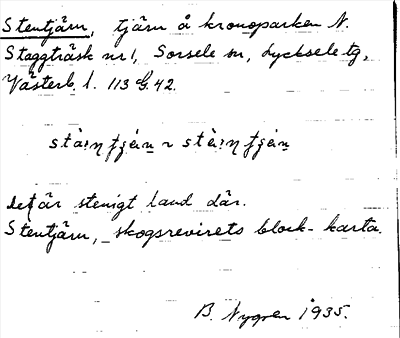 Stentjärn, tjärn å kronoparken N.
Staggträsk nr 1, Sorsele sn, Lycksele tg,
Västerb. l. 113 G. 42.
Det är stenigt land där.
Stentjärn, skogsrevirets block-karta.
B. Nygren 1935.